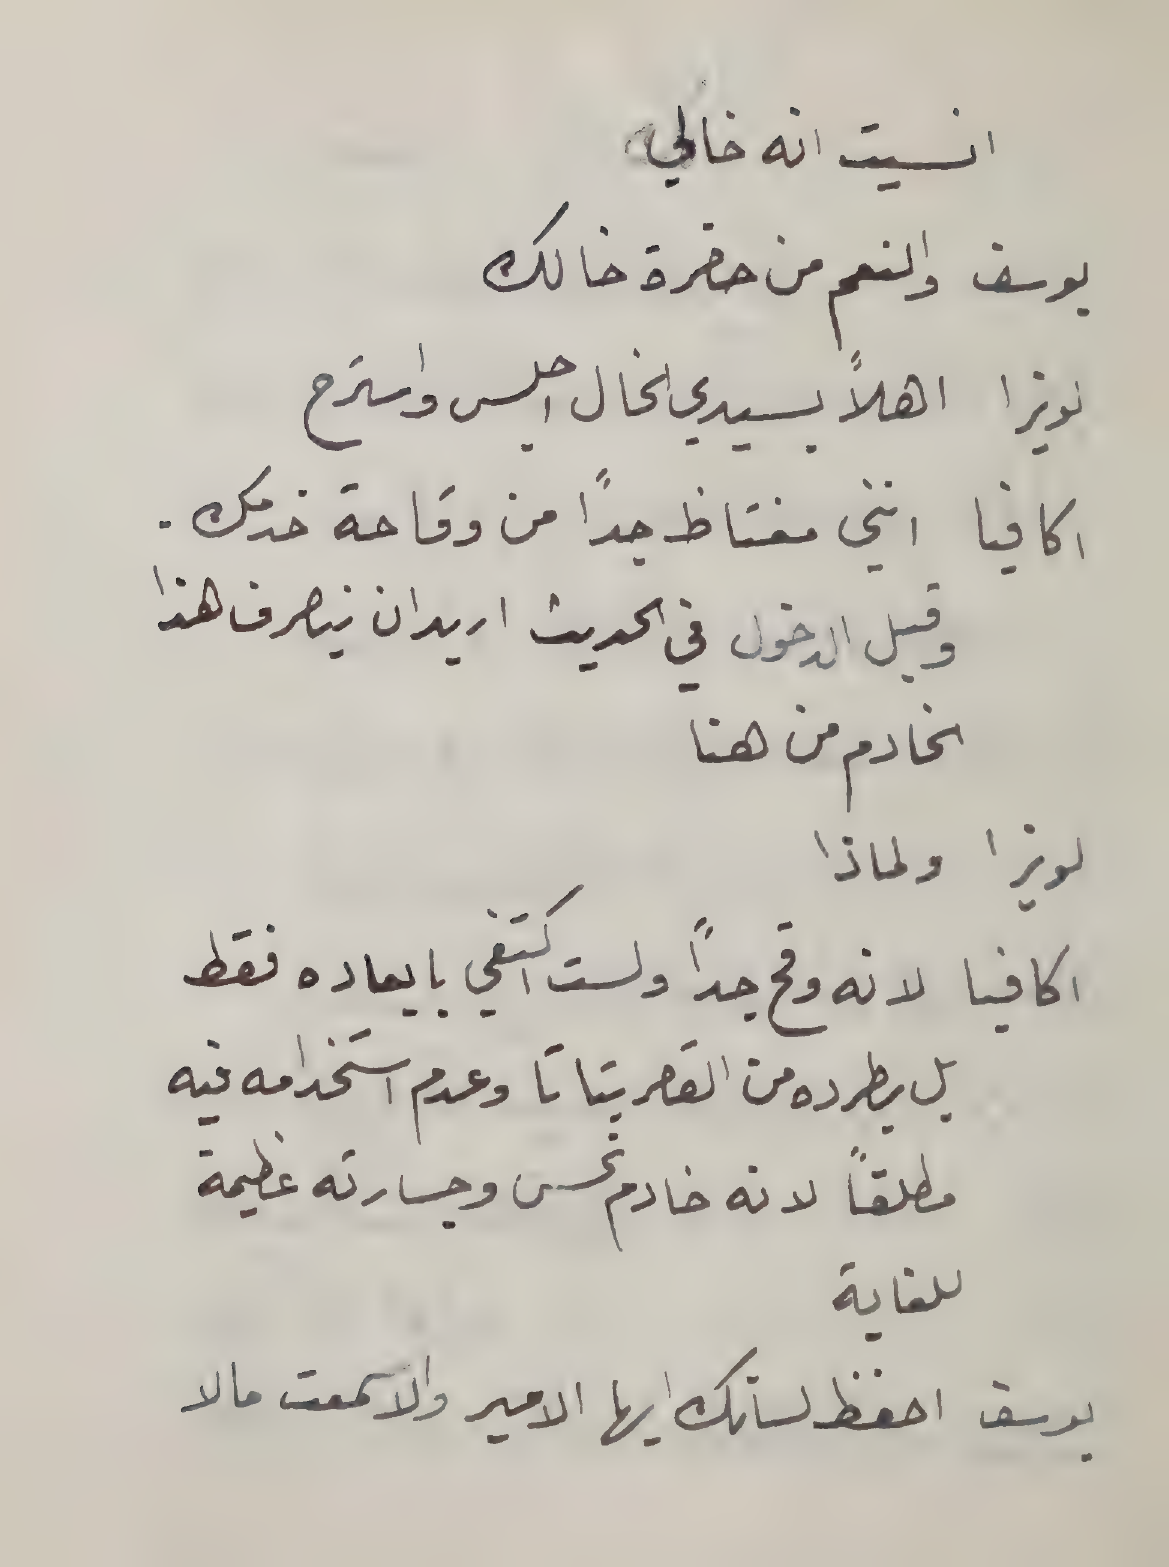 انسيت انه خالي
يوسف والنعم من حضرة خالك
لويزا اهلاً بسيدي الخال اجلس واسترح
اكافيا انني مغتاظ جداً من وقاحة خدمك .
وقبل الدخول في الحديث اريد ان ينصرف هذا
الخادم من هنا
لويزا ولماذا
اكافيا لانه وقح جداً ولست اكتفي بابعاده فقط
بل بطرده من القصر بتاتا وعدم استخدامه فيه
مطلقاً لانه خادم نحس وجسارته عظيمة
للغاية
يوسف احفظ لسانك ايها الامير والا سمعت مالا